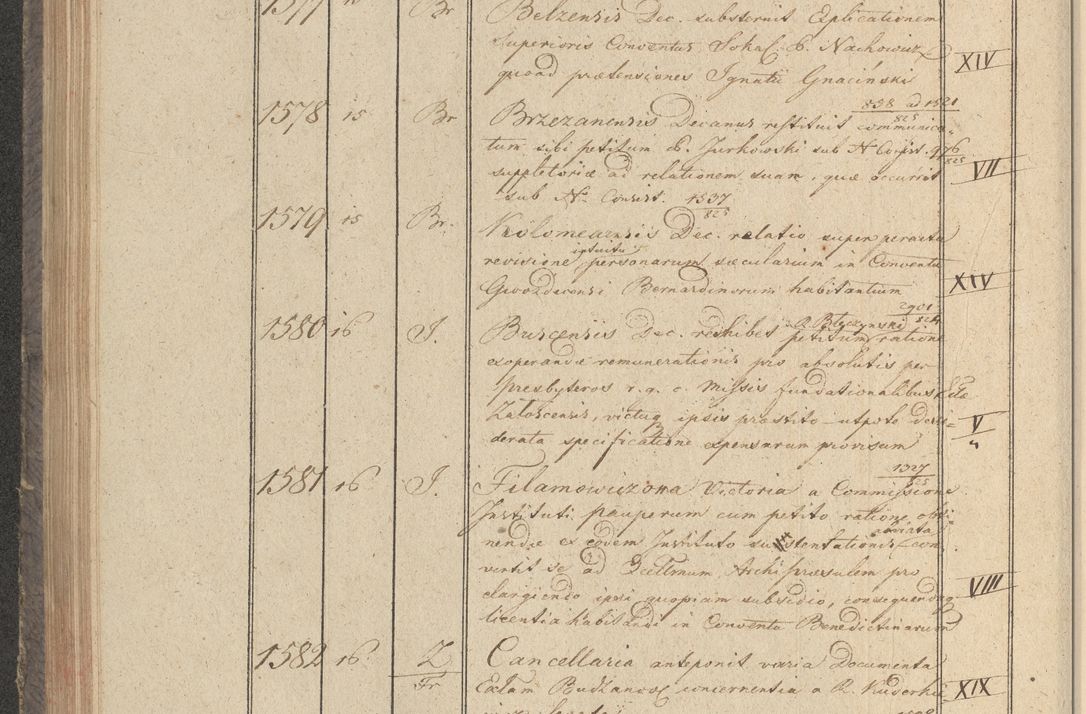 1577 Br Belzensis Dec. substernit Explicationem
Superioris Conventus Sokal. P. Nachowicz
quoad prætensiones Ignatii Gnaciński XIV
838 ad 1521
825
1578 15 Br Brzezanensis Decanus restituit communica-
tum sibi petitum P. Jurkowski sub N Consist. 976
825
suppletoriæ ad relationem suam, quæ occurrit VII
sub No Consist. 1537
825
1579 15 Br. Kolomeaensis Dec. relatio super peracta
intuitu
revisione personarum sæcularium in Conventu
Gwozdecensi Bernardinorum habitantium XIV
2901
824
1580 16 J. Buscensis Dec. rechibet petitum ratione
exoperandæ remunerationis pro absolutis per
Presbyteros r. g. c. Missis fundationalibus Eclæ
Załoscensis, victuq ipsis præstito utpote desi-
derata specificatione expensarum provisum V
1327
825
1581 16 J. Filamowiczowa Victoria a Commissione
Instituti pauperum cum petito ratione obti-
nendæ ex eodem Instituto sustentationis con
vertit se ad Excellmum Archi Præsulem pro
elargiendo ipsi quopiam subsidio, consequendaq VIII
licentia habitandi in Conventu Benedictinarum
1582 16 Z Cancellaria anteponit varia Documenta
Fr Eclam Budzanov concernentia a R. XIX